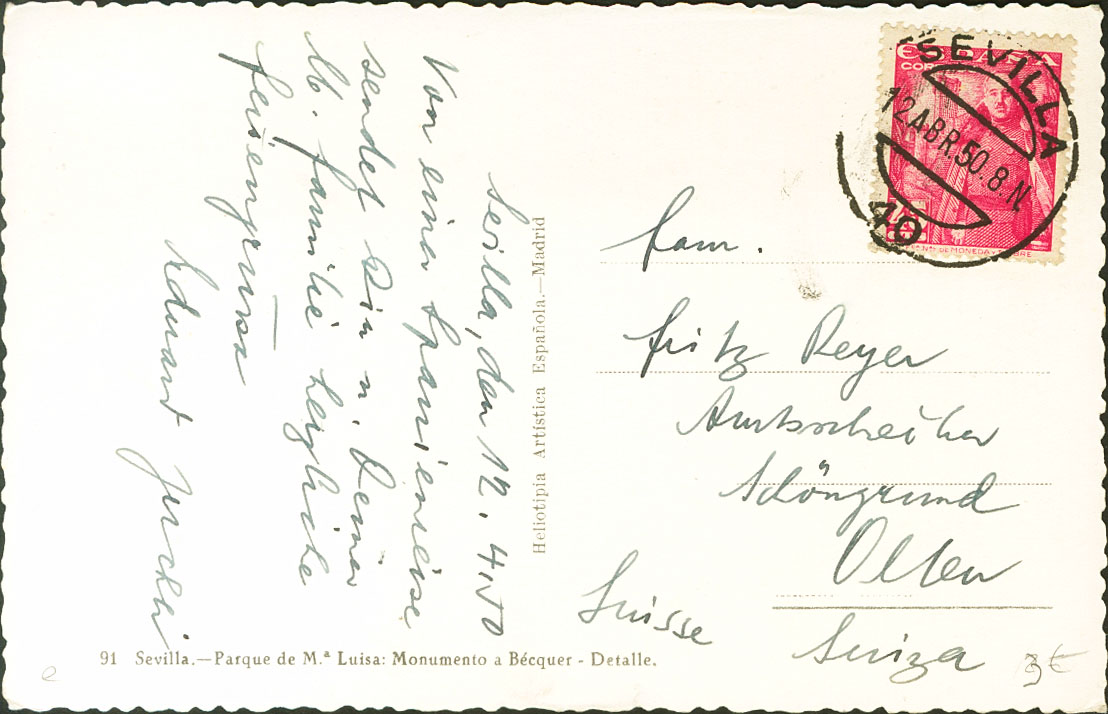 Sevilla, den 12. 4. 50
Von einer Spanienreise
sendet Dir u. Deiner
lb. Familie herzliche
Feriengrüsse
Eduard
Fam.
Fritz Peyer
Amtsschreiber
Schöngrund
Olten
Suisse
Suiza
ESPAÑA
COR
SEVILLA
12 ABR. 50. 8. N.
40
DE MONEDA Y
Heliotipia Artística Española.—Madrid
91 Sevilla.—Parque de M.ª Luisa: Monumento a Bécquer - Detalle.
3€
e